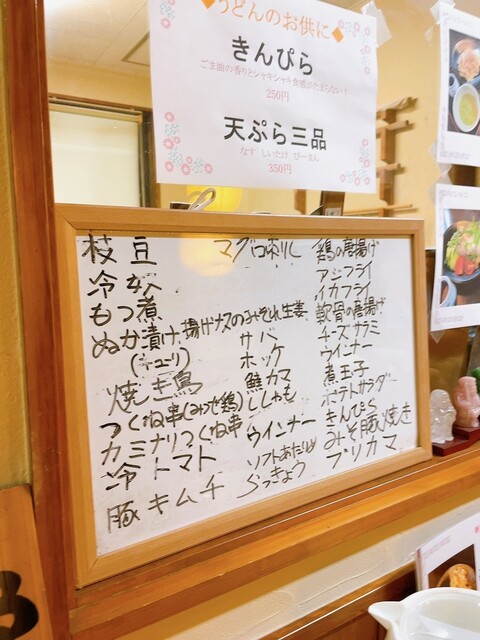 うどんのお供に
きんぴら
ごま油の香りとシャキシャキ食感がたまらない！
250円
天ぷら三品
なす しいたけ ぴーまん
350円
枝豆
冷奴
もつ煮
ぬか漬け
(キユーリ)
焼き鳥
つくね串(みつせ鶏)
カミナリつくね串
冷トマト
豚キムチ
マグロ
揚げナスのみぞれ生姜
サバ
ホッケ
鮭カマ
ししゃも
ウインナー
ソフトあたりめ
らっきょう
鶏の唐揚げ
アジフライ
イカフライ
軟骨の唐揚げ
チーズサラミ
ウインナー
煮玉子
ポテトサラダー
きんぴら
みそ豚焼き
ブリカマ